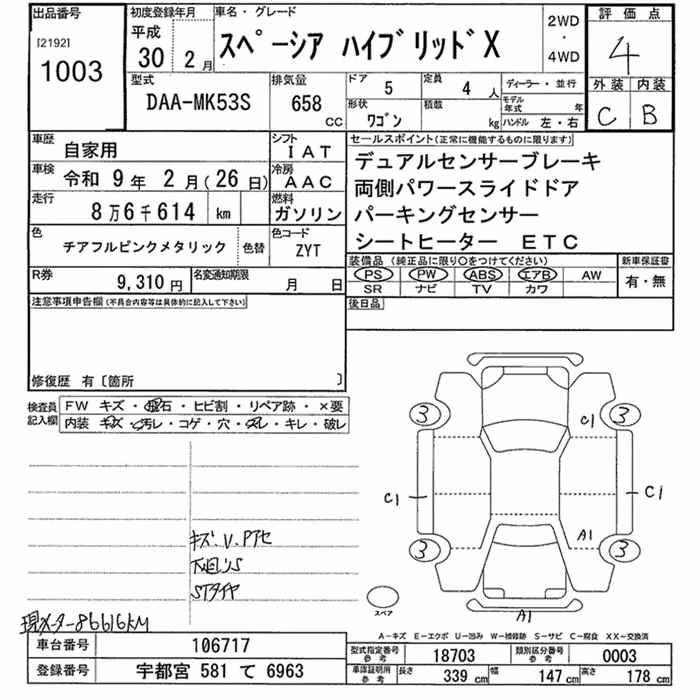 出品番号
[2192]
1003
初度登録年月
平成
30 2 月
車名・グレード
スペーシア ハイブリッドX
2WD
・
4WD
評価点
4
外装 内装
C B
型式
DAA-MK53S
排気量
658
CC
ドア
5
定員
4 人
形状
ワゴン
積数
kg
ディーラー・並行
モデル年式 年
ハンドル 左・右
車歴
自家用
シフト
IAT
車検
令和 9 年 2 月(26 日)
冷房
AAC
走行
8万6千614 km
燃料
ガソリン
色
チアフルピンクメタリック
色替
色コード
ZYT
R券
9,310 円
名変通知期限
月 日
セールスポイント(正常に機能するものに限ります)
デュアルセンサーブレーキ
両側パワースライドドア
パーキングセンサー
シートヒーター ETC
装備品(純正品に限り○をつけてください)
新車保証書
PS PW ABS エアB AW
有・無
SR ナビ TV カワ
後日品
注意事項申告欄(不具合内容等は具体的に記入して下さい)
修復歴 有〔箇所 〕
検査員
記入欄
FW キズ・飛石・ヒビ割・リペア跡・×要
内装 キズ・汚レ・コゲ・穴・スレ・キレ・破レ
3
3
C1
C1
C1
キズ.V.Pアセ
下廻リS
STタイヤ
A1
3
3
スペア
A1
現メーター86616KM
A-キズ E-エクボ U-凹み W-補修跡 S-サビ C-腐食 XX-交換済
車台番号
106717
登録番号
宇都宮 581 て 6963
型式指定番号
参考
18703
類別区分番号
参考
0003
車庫証明用
参考
長さ 339 cm 幅 147 cm 高さ 178 cm